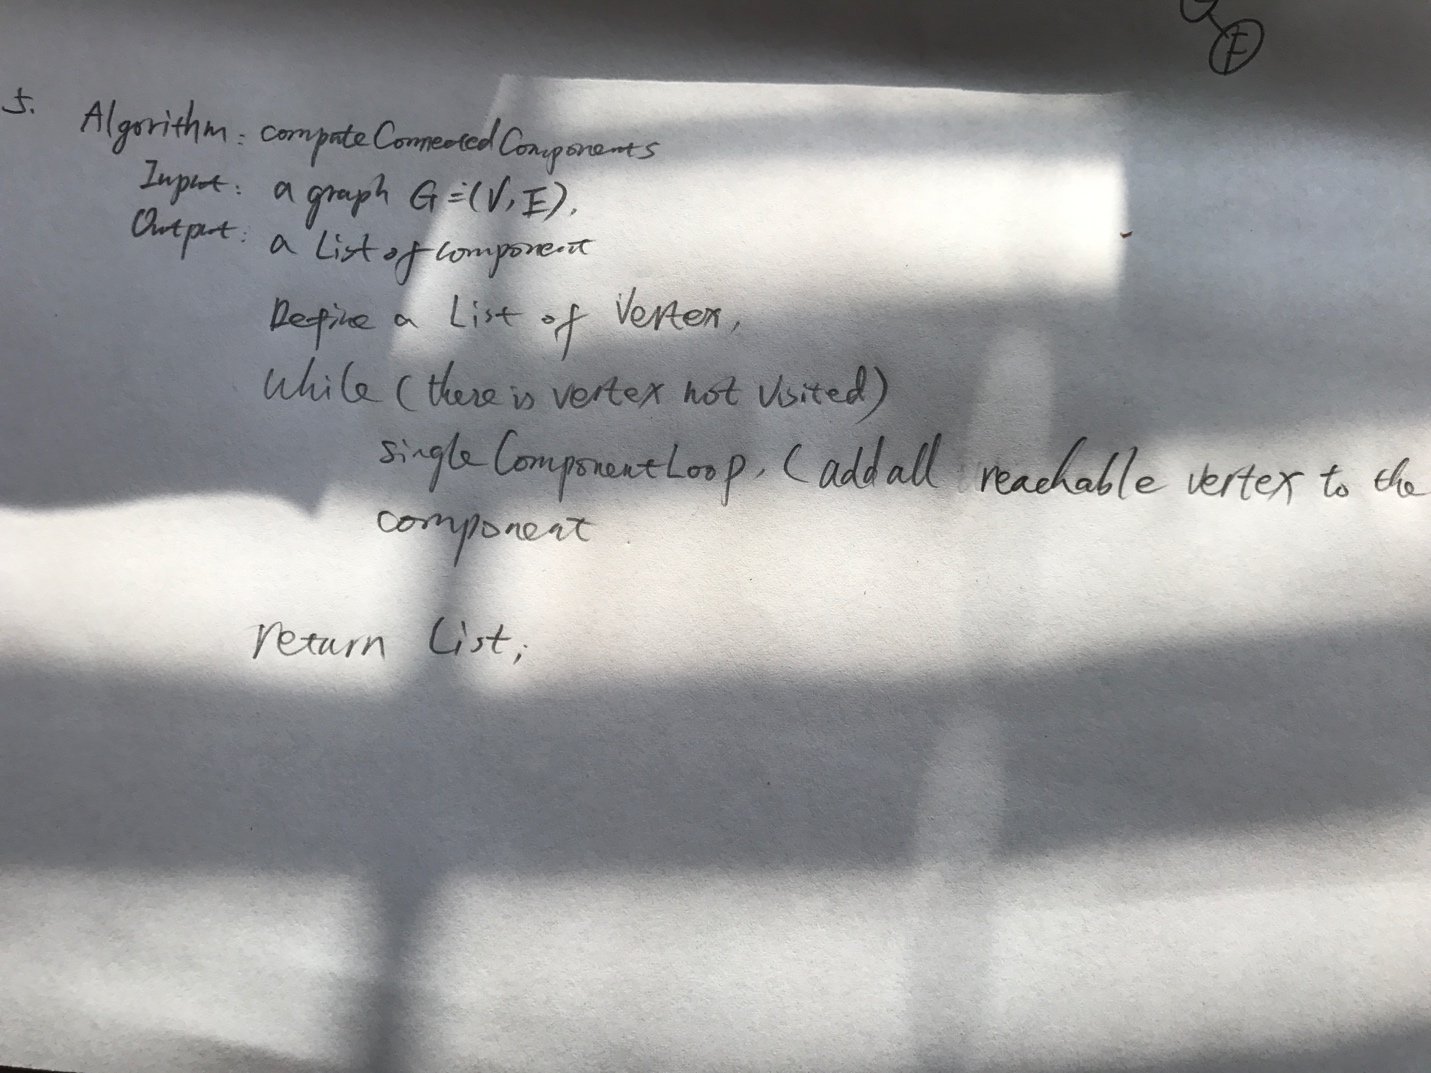 E
5. Algorithm: computeConnectedComponents
Input: a graph G=(V,E),
Output: a List of component
Define a List of Vertex,
while (there is vertex not visited)
singleComponentLoop, (add all reachable vertex to the
component
return List;